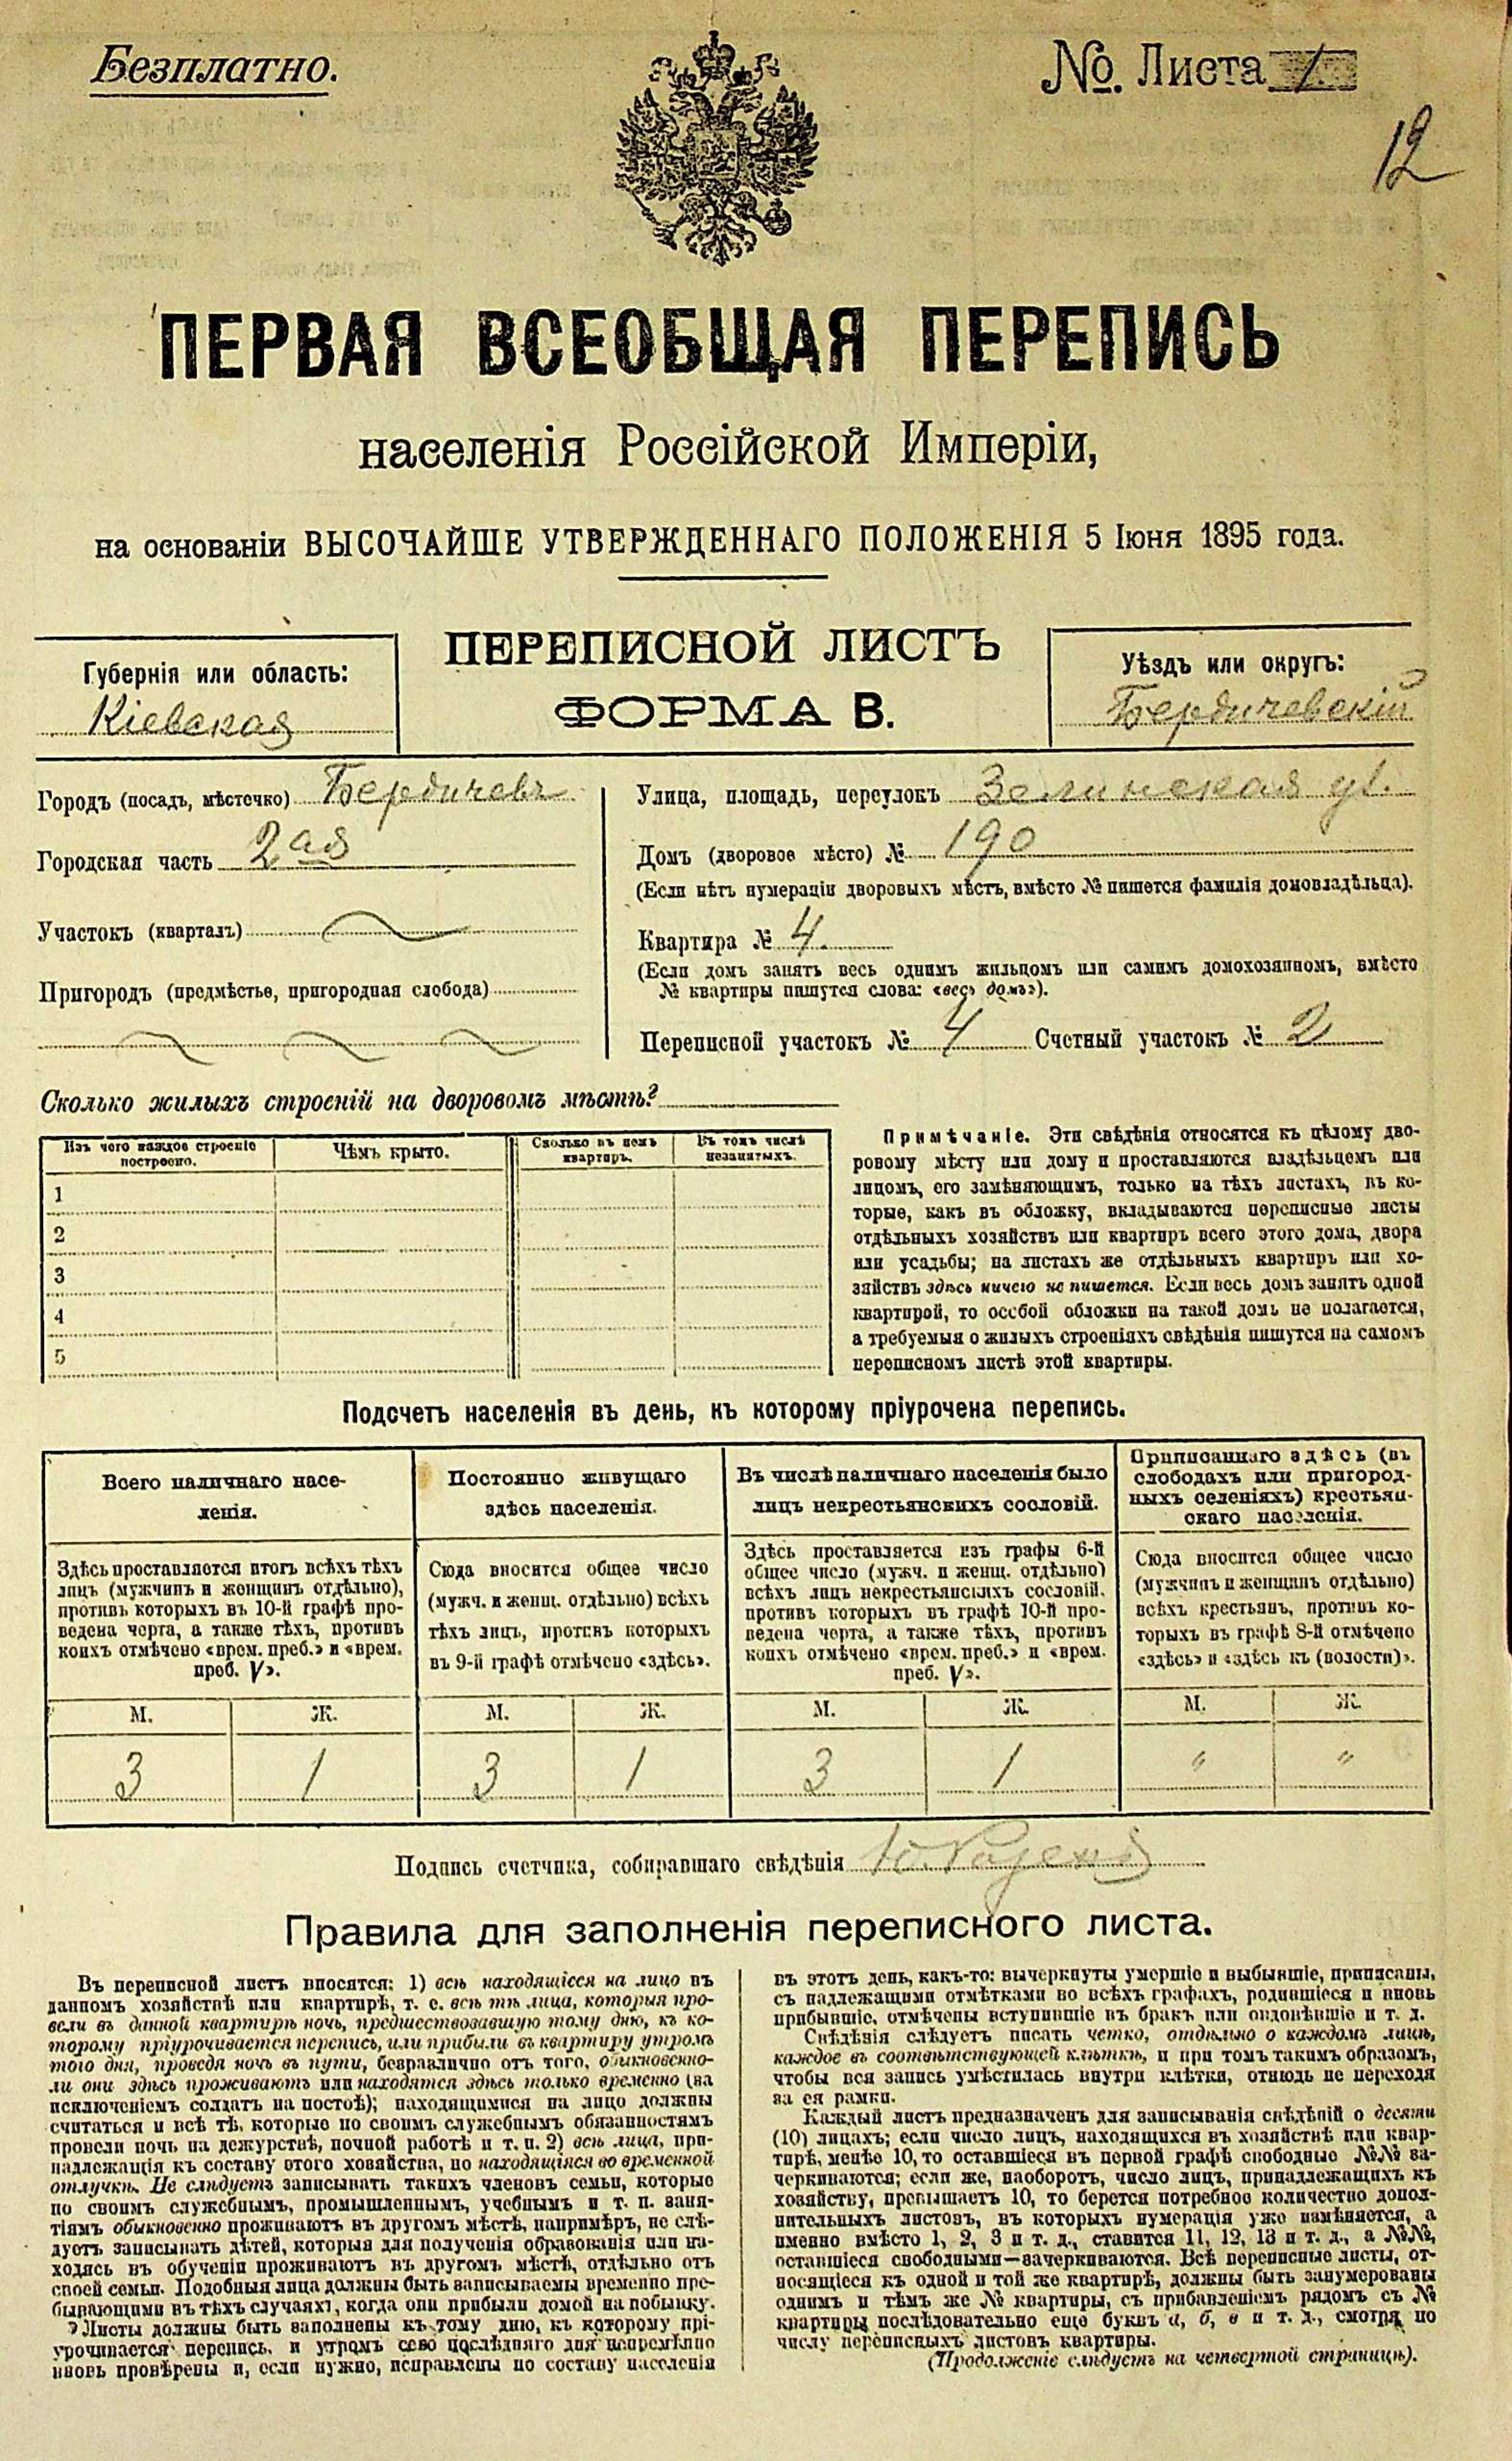 Безплатно.
№. Листа 1
12
ПЕРВАЯ ВСЕОБЩАЯ ПЕРЕПИСЬ
населенія Россійской Имперіи,
на основаніи ВЫСОЧАЙШЕ УТВЕРЖДЕННАГО ПОЛОЖЕНІЯ 5 Іюня 1895 года.
ПЕРЕПИСНОЙ ЛИСТЪ
ФОРМА В.
Губернія или область:
Кіевская
Уѣздъ или округъ:
Бердичевскій
Городъ (посадъ, мѣстечко) Бердичевъ
Городская часть 2ая
Участокъ (кварталъ)
Пригородъ (предмѣстье, пригородная слобода)
Улица, площадь, переулокъ Зелинская ул.
Домъ (дворовое мѣсто) № 190
(Если нѣтъ нумераціи дворовыхъ мѣстъ, вмѣсто № пишется фамилія домовладѣльца).
Квартира № 4.
(Если домъ занятъ весь однимъ жильцомъ или самимъ домохозяиномъ, вмѣсто
№ квартиры пишутся слова: «весь домъ»).
Переписной участокъ № 4 Счетный участокъ № 2
Сколько жилыхъ строеній на дворовомъ мѣстѣ?
Изъ чего каждое строеніе
построено.
Чѣмъ крыто.
Сколько въ немъ
квартиръ.
Въ томъ числѣ
незанятыхъ.
1
2
3
4
5
Примѣчаніе. Эти свѣдѣнія относятся къ цѣлому дво-
ровому мѣсту или дому и проставляются владѣльцемъ или
лицомъ, его замѣняющимъ, только на тѣхъ листахъ, въ ко-
торые, какъ въ обложку, вкладываются переписные листы
отдѣльныхъ хозяйствъ или квартиръ всего этого дома, двора
или усадьбы; на листахъ же отдѣльныхъ квартиръ или хо-
зяйствъ здѣсь ничего не пишется. Если весь домъ занятъ одной
квартирой, то особой обложки на такой домъ не полагается,
а требуемыя о жилыхъ строеніяхъ свѣдѣнія пишутся на самомъ
переписномъ листѣ этой квартиры.
Подсчетъ населенія въ день, къ которому пріурочена перепись.
Всего наличнаго насе-
ленія.
Постоянно живущаго
здѣсь населенія.
Въ числѣ наличнаго населенія было
лицъ некрестьянскихъ сословій.
Приписаннаго здѣсь (въ
слободахъ или пригород-
ныхъ селеніяхъ) крестьян-
скаго населенія.
Здѣсь проставляется итогъ всѣхъ тѣхъ
лицъ (мужчинъ и женщинъ отдѣльно),
противъ которыхъ въ 10-й графѣ про-
ведена черта, а также тѣхъ, противъ
коихъ отмѣчено «врем. преб.» и «врем.
преб. V».
Сюда вносится общее число
(мужч. и женщ. отдѣльно) всѣхъ
тѣхъ лицъ, противъ которыхъ
въ 9-й графѣ отмѣчено «здѣсь».
Здѣсь проставляется изъ графы 6-й
общее число (мужч. и женщ. отдѣльно)
всѣхъ лицъ некрестьянскихъ сословій,
противъ которыхъ въ графѣ 10-й про-
ведена черта, а также тѣхъ, противъ
коихъ отмѣчено «врем. преб.» и «врем.
преб. V».
Сюда вносится общее число
(мужчинъ и женщинъ отдѣльно)
всѣхъ крестьянъ, противъ ко-
торыхъ въ графѣ 8-й отмѣчено
«здѣсь» и «здѣсь къ (волости)».
М. Ж. М. Ж. М. Ж. М. Ж.
3 1 3 1 3 1 " "
Подпись счетчика, собиравшаго свѣдѣнія
Правила для заполненія переписного листа.
Въ переписной листъ вносятся: 1) всѣ находящіеся на лицо въ
данномъ хозяйствѣ или квартирѣ, т. е. всѣ тѣ лица, которыя про-
вели въ данной квартирѣ ночь, предшествовавшую тому дню, къ ко-
торому пріурочивается перепись, или прибыли въ квартиру утромъ
того дня, проведя ночь въ пути, безразлично отъ того, обыкновенно-
ли они здѣсь проживаютъ или находятся здѣсь только временно (за
исключеніемъ солдатъ на постоѣ); находящимися на лицо должны
считаться и всѣ тѣ, которые по своимъ служебнымъ обязанностямъ
провели ночь на дежурствѣ, ночной работѣ и т. п. 2) всѣ лица, при-
надлежащія къ составу этого хозяйства, но находящіяся во временной
отлучкѣ. Не слѣдуетъ записывать такихъ членовъ семьи, которые
по своимъ служебнымъ, промышленнымъ, учебнымъ и т. п. заня-
тіямъ обыкновенно проживаютъ въ другомъ мѣстѣ, напримѣръ, не слѣ-
дуетъ записывать дѣтей, которыя для полученія образованія или на-
ходясь въ обученіи проживаютъ въ другомъ мѣстѣ, отдѣльно отъ
своей семьи. Подобныя лица должны быть записываемы временно пре-
бывающими въ тѣхъ случаяхъ, когда они прибыли домой на побывку.
Листы должны быть заполнены къ тому дню, къ которому прі-
урочивается перепись, и утромъ сего послѣдняго дня непремѣнно
вновь провѣрены и, если нужно, исправлены по составу населенія
въ этотъ день, какъ-то: вычеркнуты умершіе и выбывшіе, приписаны,
съ надлежащими отмѣтками во всѣхъ графахъ, родившіеся и вновь
прибывшіе, отмѣчены вступившіе въ бракъ или овдовѣвшіе и т. д.
Свѣдѣнія слѣдуетъ писать четко, отдѣльно о каждомъ лицѣ,
каждое въ соотвѣтствующей клѣткѣ, и при томъ такимъ образомъ,
чтобы вся запись умѣстилась внутри клѣтки, отнюдь не переходя
за ея рамки.
Каждый листъ предназначенъ для записыванія свѣдѣній о десяти
(10) лицахъ; если число лицъ, находящихся въ хозяйствѣ или квар-
тирѣ, менѣе 10, то оставшіеся въ первой графѣ свободные №№ за-
черкиваются; если же, наоборотъ, число лицъ, принадлежащихъ къ
хозяйству, превышаетъ 10, то берется потребное количество допол-
нительныхъ листовъ, въ которыхъ нумерація уже измѣняется, а
именно вмѣсто 1, 2, 3 и т. д., ставится 11, 12, 13 и т. д., а №№,
оставшіеся свободными—зачеркиваются. Всѣ переписные листы, от-
носящіеся къ одной и той же квартирѣ, должны быть занумерованы
однимъ и тѣмъ же № квартиры, съ прибавленіемъ рядомъ съ №
квартиры послѣдовательно еще буквъ а, б, в и т. д., смотря по
числу переписныхъ листовъ квартиры.
(Продолженіе слѣдуетъ на четвертой страницѣ).